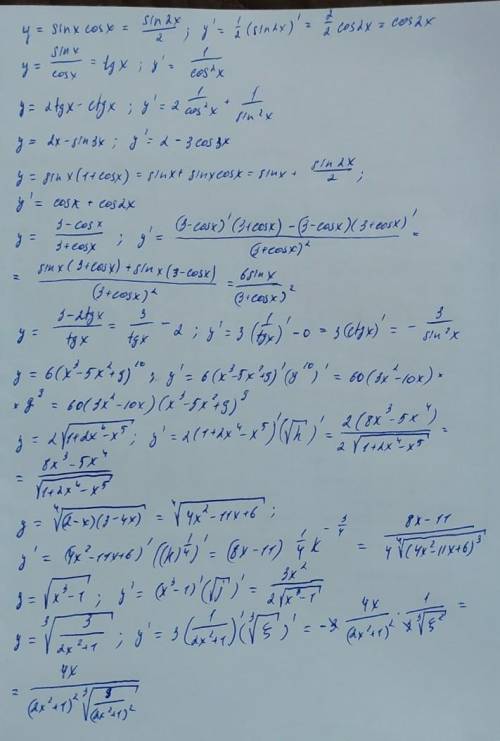 y = sinx cosx = sin2x/2 ; y' = 1/2 (sin2x)' = 2/2 cos2x = cos2x
y = sinx/cosx = tgx ; y' = 1/cos²x
y = 2tgx - ctgx ; y' = 2 1/cos²x + 1/sin²x
y = 2x - sin3x ; y' = 2 - 3cos3x
y = sinx(1+cosx) = sinx + sinxcosx = sinx + sin2x/2 ;
y' = cosx + cos2x
y = (3-cosx)/(3+cosx) ; y' = ((3-cosx)'(3+cosx) - (3-cosx)(3+cosx)')/(3+cosx)² =
= (sinx(3+cosx) + sinx(3-cosx))/(3+cosx)² = 6sinx/(3+cosx)²
y = (3-2tgx)/tgx = 3/tgx - 2 ; y' = 3(1/tgx)' - 0 = 3(ctgx)' = - 3/sin²x
y = 6(x³-5x²+9)¹⁰ ; y' = 6(x³-5x²+9)'(g¹⁰)' = 60(3x²-10x) ×
× g⁹ = 60(3x²-10x)(x³-5x²+9)⁹
y = 2√(1+2x⁴-x⁵) ; y' = 2(1+2x⁴-x⁵)'(√h)' = 2(8x³-5x⁴)/(2√(1+2x⁴-x⁵)) =
= (8x³-5x⁴)/√(1+2x⁴-x⁵)
y = ⁴√((2-x)(3-4x)) = ⁴√(4x²-11x+6) ;
y' = (4x²-11x+6)'((k)^(1/4))' = (8x-11) 1/4 k^(-3/4) = (8x-11)/(4 ⁴√((4x²-11x+6)³))
y = √(x³-1) ; y' = (x³-1)'(√j)' = 3x²/(2√(x³-1))
y = ³√(3/(2x²+1)) ; y' = 3(1/(2x²+1))'(³√ξ)' = -3 4x/(2x²+1)² · 1/(3 ³√ξ²) =
= 4x/((2x²+1)² ³√(9/(2x²+1)²))